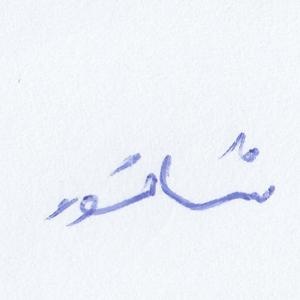 شاتور